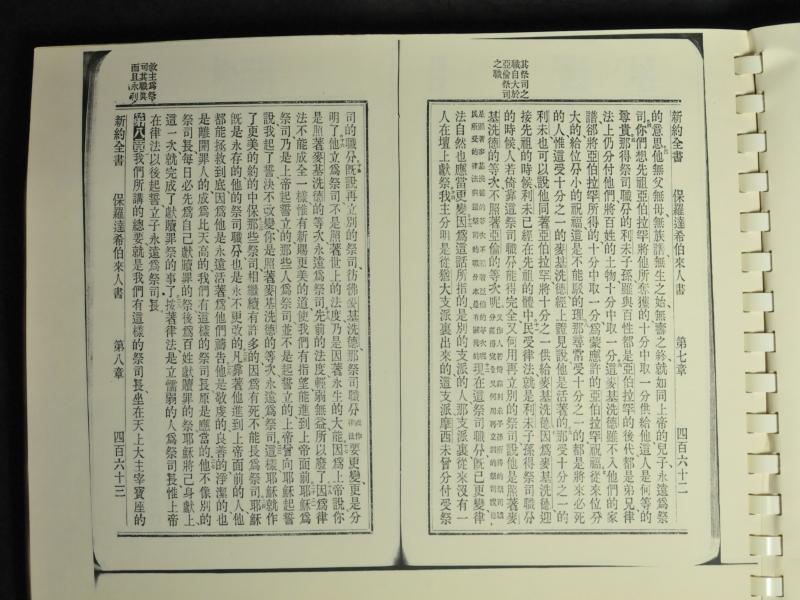 其祭司之
職自大於
亞倫祭司
之職
新約全書　保羅達希伯來人書　第七章　四百六十二
的意思他無父無母無族譜無生之始無壽之終就如同上帝的兒子永遠爲祭
司你們想先祖亞伯拉罕將他所奪獲的十分中取一分供給他這人是何等的
尊貴那得祭司職分的利未子孫雖與百姓都是亞伯拉罕的後代都是弟兄律
法上仍分付他們將百姓的土物十分中取一分這麥基洗德雖不入他們的家
譜卻將亞伯拉罕所得的十分中取一分爲蒙應許的亞伯拉罕祝福從來位分
大的給位分小的祝福這是不能駁的理那尋常受十分之一的都是將來必死
的人惟這受十分之一的麥基洗德經上證見說他是活著的那受十分之一的
利未也可以說他同著亞伯拉罕將十分之一供給麥基洗德因爲麥基洗德迎
接先祖的時候利未已經在先祖的體中民受律法就是利未子孫得祭司職分
的時候人若倚靠這祭司職分能得完全又何用再立別的祭司說他是照著麥
基洗德的等次不照著亞倫的等次呢
現在這祭司職分既已更變律
法自然也應當更變因爲這話所指的是別的支派的人那支派裏從來沒有一
人在壇上獻祭我主分明是從猶大支派裏出來的這支派摩西未曾分付受祭
救主爲祭
司其職眞
而且永利
司的職分既說再立別的祭司彷彿麥基洗德那祭司
要更是分
明了他立爲祭司不是照著世上的法度乃是因著永生的大能因爲上帝說你
是照著麥基洗德的等次永遠爲祭司先前的法度輕弱無益所以廢了因爲律
法不能成全一樣惟有新賜更美的道使我們有指望能進到上帝面前耶穌爲
祭司乃是上帝起誓立的那些人爲祭司並不是起誓立的上帝曾向耶穌起誓
說我起了誓決不改變你是照著麥基洗德的等次永遠爲祭司這樣耶穌就作
了更美的約的中保那些祭司相繼續有許多的因爲有死不能長爲祭司耶穌
既是永存的他的祭司職分也是永不更改的凡靠著他進到上帝面前的人他
都能拯救到底因爲他是永遠活著爲他們禱告他是敬虔的良善的淨潔的也
是離開罪人的成爲比天高的我們有這樣的祭司長原是應當的他不像別的
祭司長每日必先爲自己獻贖罪的祭後爲百姓獻贖罪的祭耶穌將己身獻上
這一次就完成了獻贖罪祭的事了按著律法是立懦弱的人爲祭司長惟上帝
在律法以後起誓立子永遠爲祭司長
第八章我們所講的總要就是我們有這樣的祭司長坐在天上大主宰寶座的
新約全書　保羅達希伯來人書　第八章　四百六十三